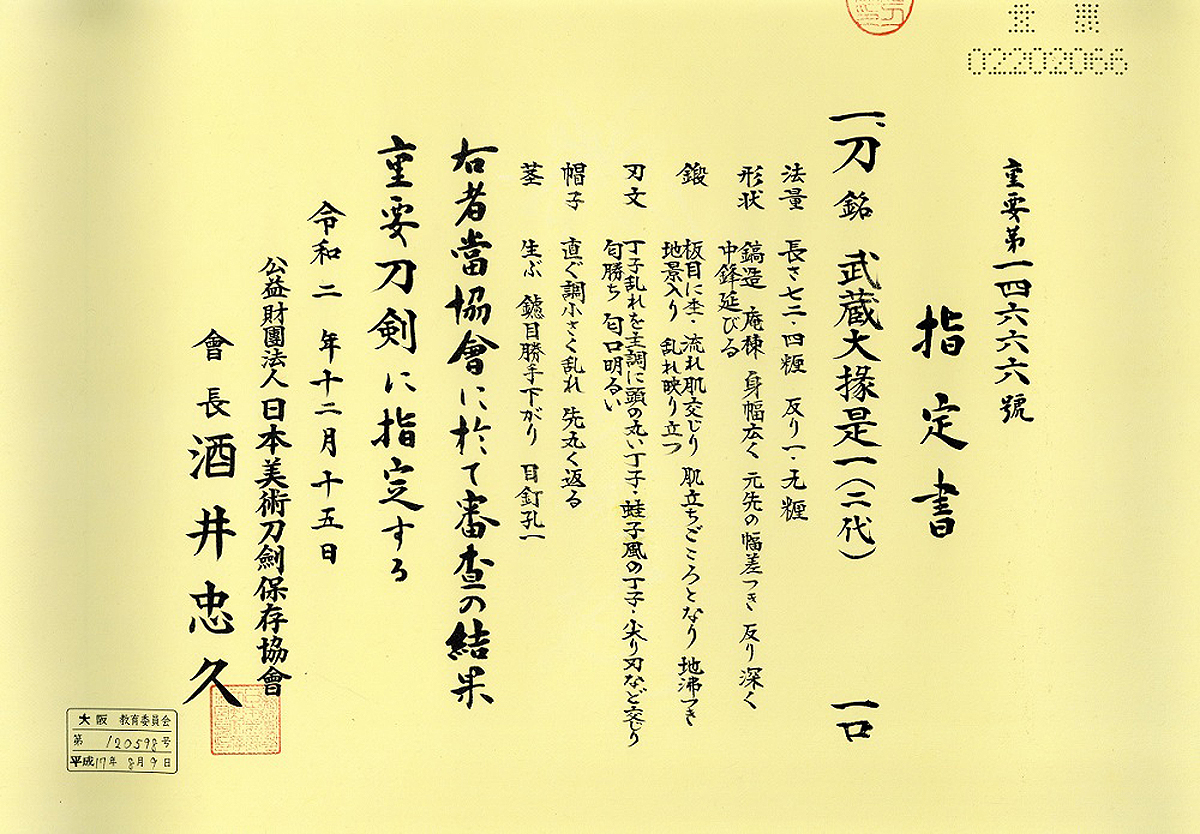 重要
02202066
重要第一四六六六號
指定書
一、刀 銘 武蔵大掾是一(二代) 一口
法量 長さ七三・四糎 反り一・九糎
形状 鎬造 庵棟 身幅広く 元先の幅差つき 反り深く
中鋒延びる
鍛 板目に杢・流れ肌交じり 肌立ちごころとなり 地沸つき
地景入り 乱れ映り立つ
刃文 丁子乱れを主調に頭の丸い丁子・蛙子風の丁子・尖り刃など交じり
匂勝ち 匂口明るい
帽子 直ぐ調小さく乱れ 先丸く返る
茎 生ぶ 鑢目勝手下がり 目釘孔一
右者當協會に於て審査の結果
重要刀剣に指定する
令和二年十二月十五日
公益財團法人日本美術刀劍保存協會
會長 酒井忠久
大阪 教育委員会
第 120598号
平成17年 8月9日